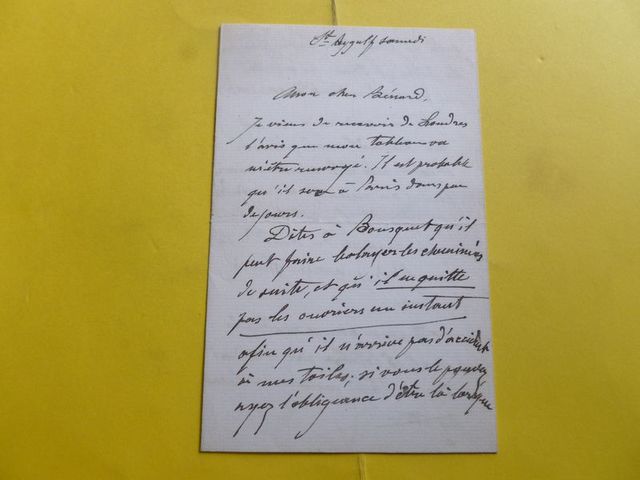 St Aygulf samedi
Mon cher Bénard,
Je viens de recevoir de Londres
l'avis que mon tableau va
m'être renvoyé. Il est probable
qu'il sera à Paris dans peu
de jours.
Dites à Bousquet qu'il
peut faire balayer les cheminées
de suite, et qu'il ne quitte
pas les ouvriers un instant
afin qu'il n'arrive pas d'accident
à mes toiles; si vous le pouvez
ayez l'obligeance d'être là lorsque